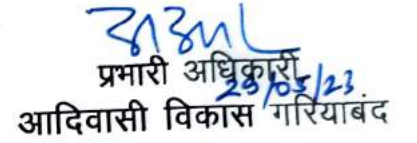 प्रभारी अधिकारी
29/05/23
आदिवासी विकास गरियाबंद